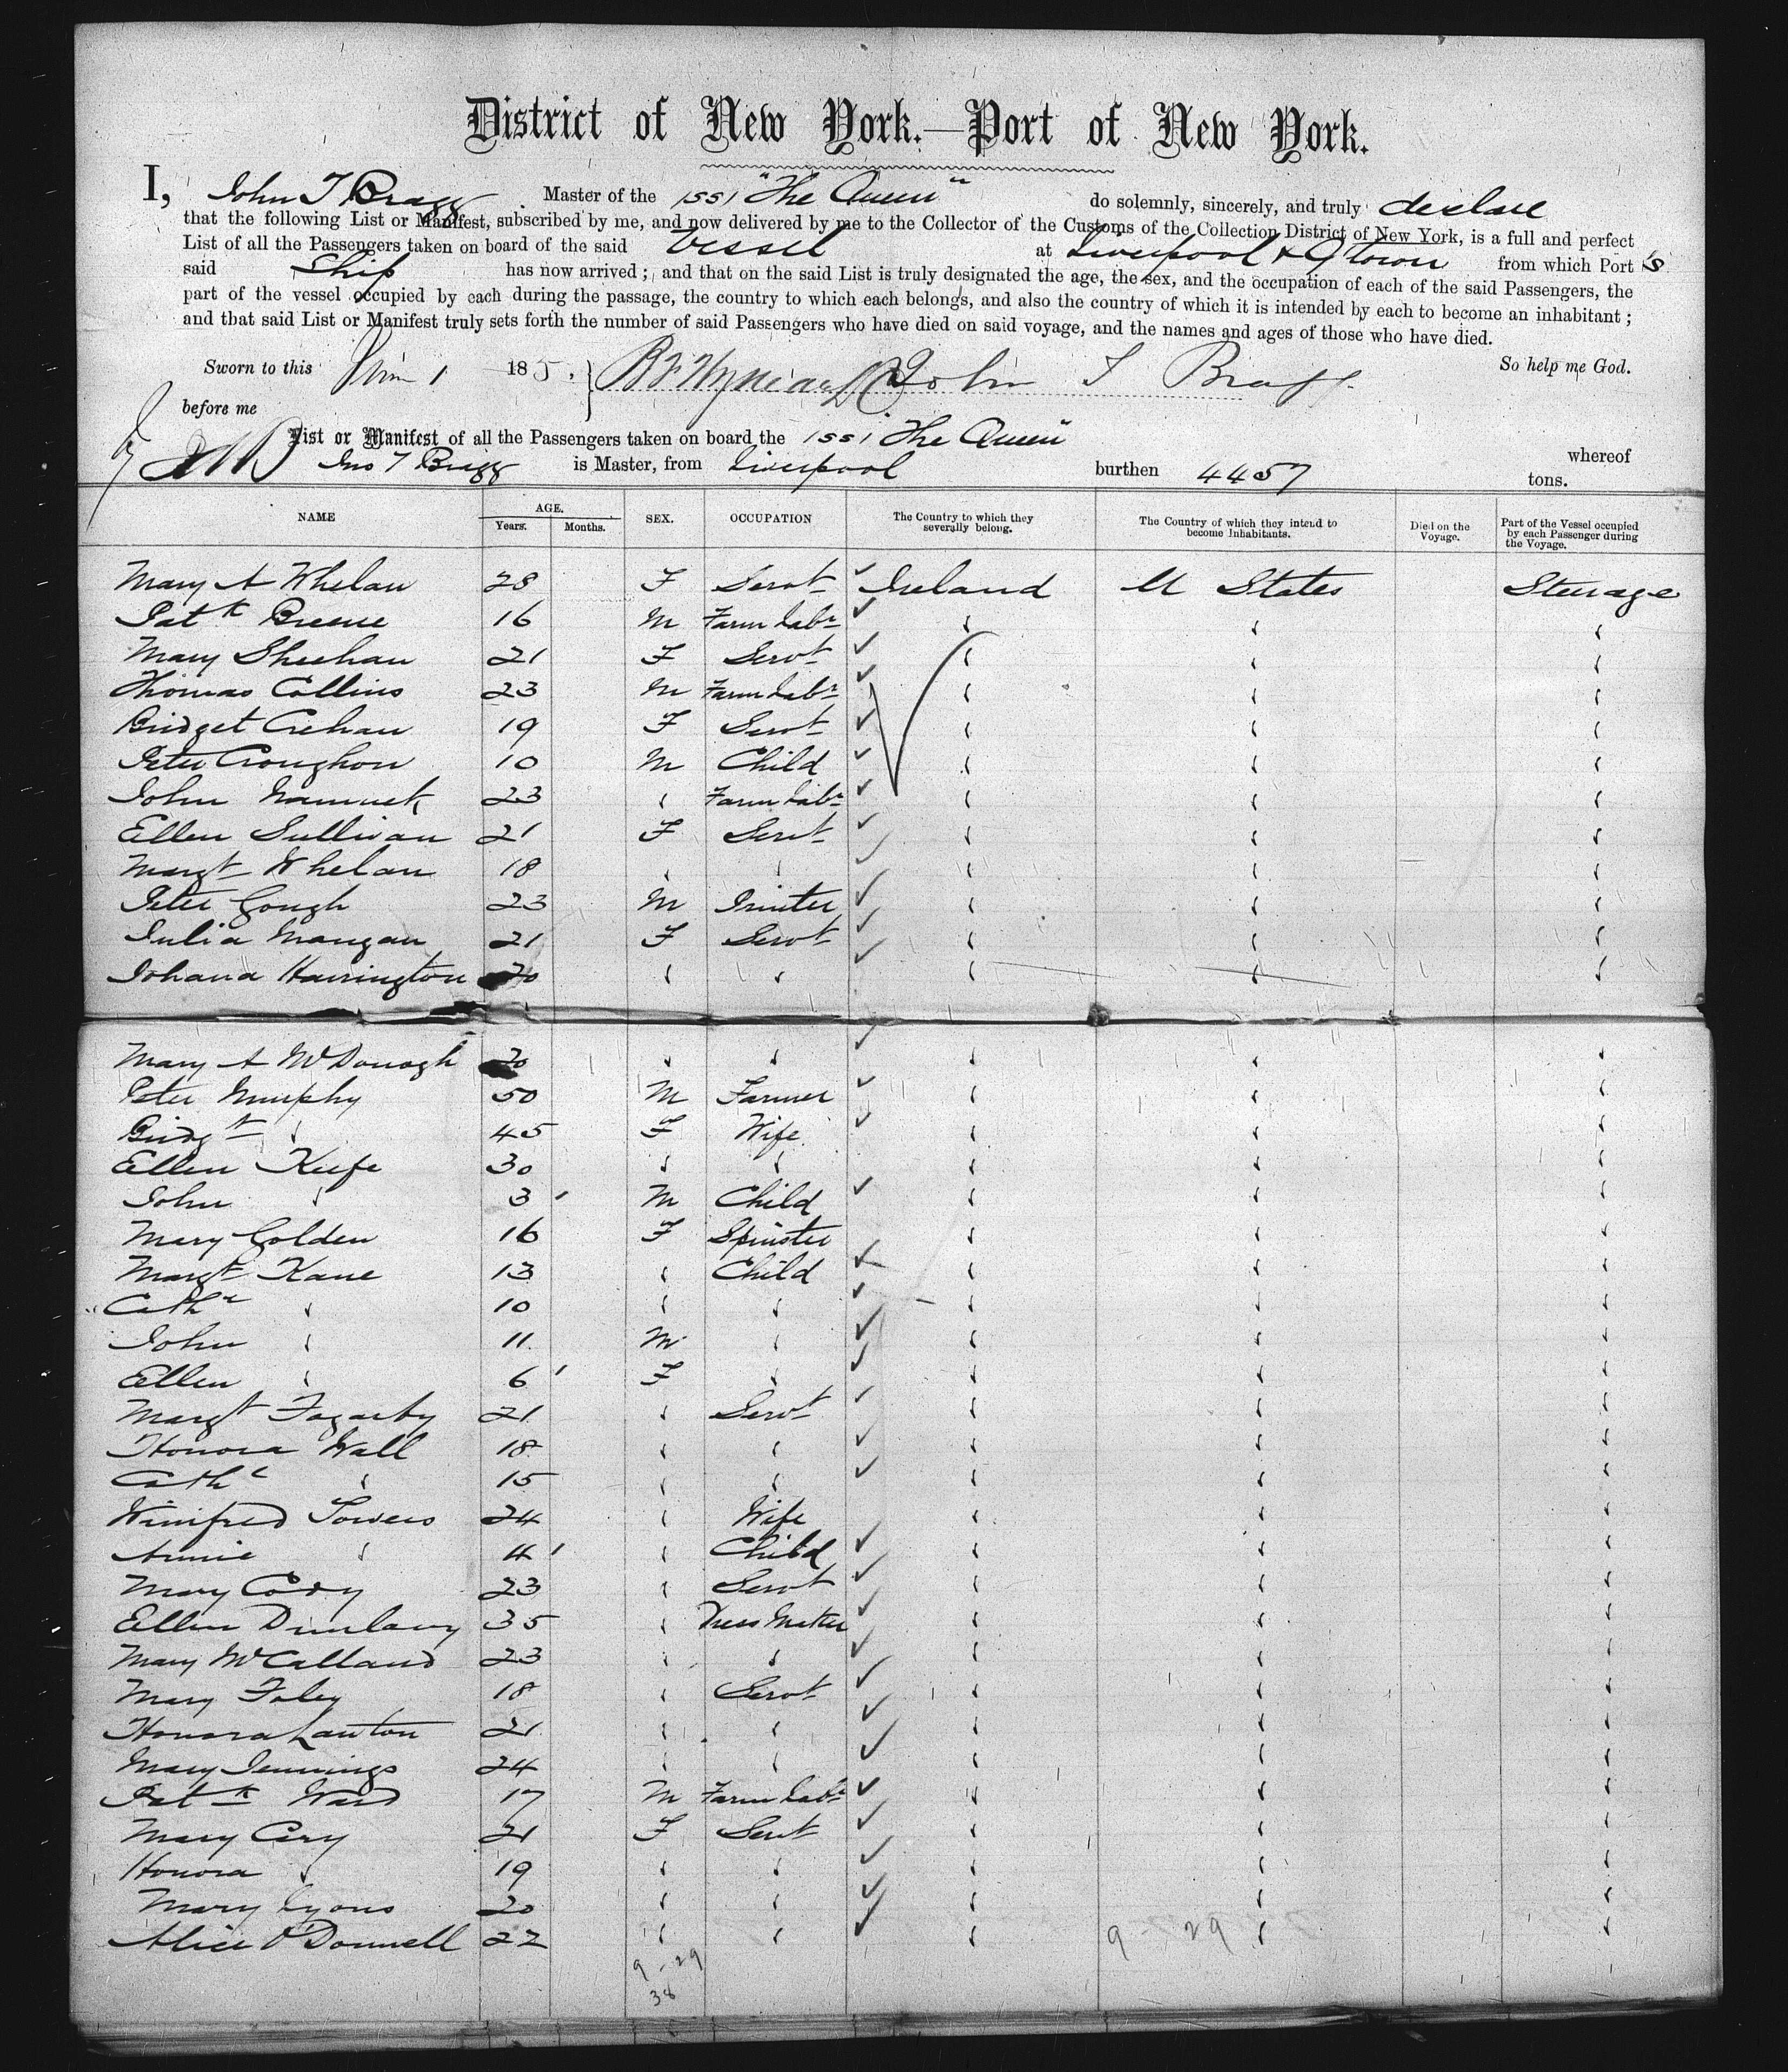 District of New York.—Port of New York.
I, John T Bragg Master of the 1551 "The Queen" do solemnly, sincerely, and truly declare
that the following List or Manifest, subscribed by me, and now delivered by me to the Collector of the Customs of the Collection District of New York, is a full and perfect
List of all the Passengers taken on board of the said Vessel at Liverpool & Qtown from which Port's
said Ship has now arrived; and that on the said List is truly designated the age, the sex, and the occupation of each of the said Passengers, the
part of the vessel occupied by each during the passage, the country to which each belongs, and also the country of which it is intended by each to become an inhabitant;
and that said List or Manifest truly sets forth the number of said Passengers who have died on said voyage, and the names and ages of those who have died.
Sworn to this 1 18 John T Bragg So help me God.
before me
List or Manifest of all the Passengers taken on board the 1551 The Queen whereof
Jno T Bragg is Master, from Liverpool burthen 4457 tons.
NAME AGE. Years. Months. SEX. OCCUPATION The Country to which they severally belong. The Country of which they intend to become Inhabitants. Died on the Voyage. Part of the Vessel occupied by each Passenger during the Voyage.
Mary A Whelan 28 F Servt Ireland U States Steerage
Patk Breene 16 M Farm Labr
Mary Sheehan 21 F Servt
Thomas Collins 23 M Farm Labr
Bridget Crehan 19 F Servt
Peter Croughon 10 M Child
John 23 Farm Labr
Ellen Sullivan 21 F Servt
Margt Whelan 18
Peter Gough 23 M
Julia Mangan 21 F Servt
Johana Harrington 20
Mary A McDonogh 20
Peter Murphy 50 M Farmer
Bridgt 45 F Wife
Ellen Keefe 30
John 3 M Child
Mary Golden 16 F Spinster
Margt Kane 13 Child
Cathe 10
John 11 M
Ellen 6 F
Margt Fogarty 21 Servt
Honora Wall 18
Cathe 15
Winifred Towers 24 Wife
Annie 4 Child
Mary Cody 23 Servt
Ellen Dunlavy 35 Dress Maker
Mary McCalland 23
Mary Foley 18 Servt
Honora Lawton 21
Mary Jennings 24
Patk Ward 17 M Farm Labr
Mary Cary 21 F Servt
Honora 19
Mary Lyons 20
Alice O'Donnell 22 9 - 29
9 - 29
38